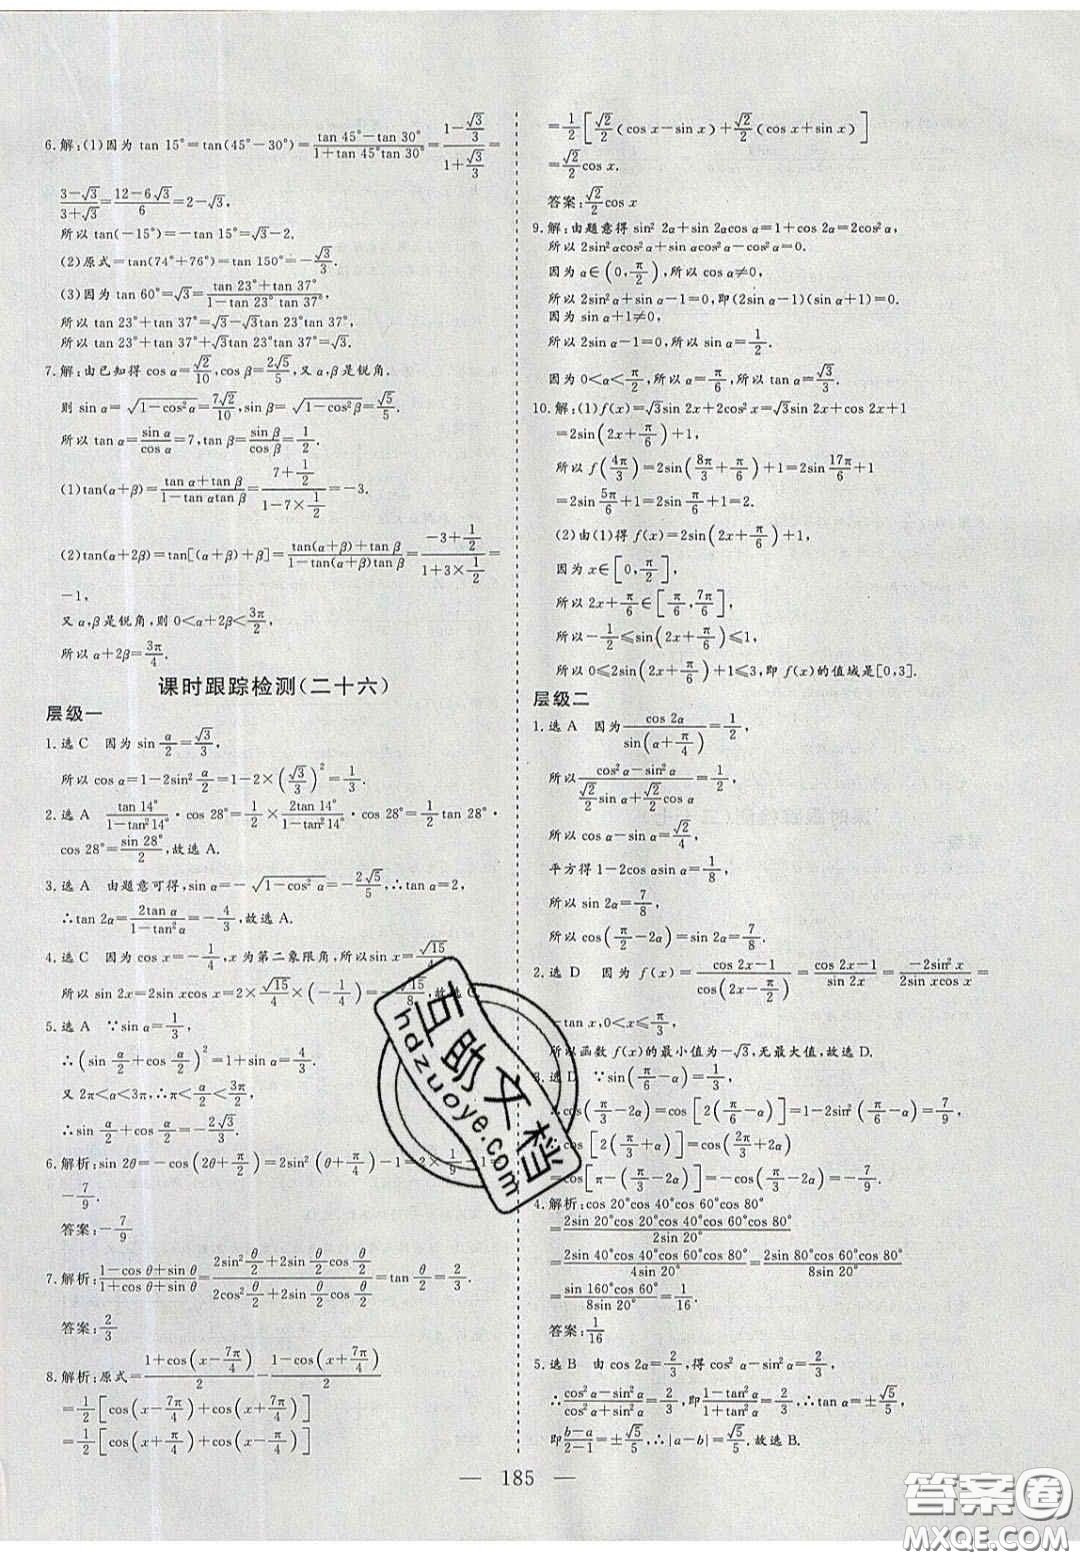 6.解:(1)因为 tan 15°=tan(45°-30°)=(tan 45°-tan 30°)/(1+tan 45°tan 30°)=(1-√3/3)/(1+√3/3)=
(3-√3)/(3+√3)=(12-6√3)/6=2-√3,
所以 tan(-15°)=√3-2.
(2)原式=tan(74°+76°)=tan 150°=-√3/3.
(3)因为 tan 60°=√3=(tan 23°+tan 37°)/(1-tan 23°tan 37°),
所以 tan 23°+tan 37°=√3-√3tan 23°tan 37°,
所以 tan 23°+tan 37°+√3tan 23°tan 37°=√3.
7.解:由已知得 cos α=√2/10,cos β=2√5/5,又 α,β是锐角.
则 sin α=√(1-cos²α)=7√2/10,sin β=√(1-cos²β)=√5/5.
所以 tan α=sin α/cos α=7,tan β=sin β/cos β=1/2.
(1)tan(α+β)=(tan α+tan β)/(1-tan αtan β)=(7+1/2)/(1-7×1/2)=-3.
(2)tan(α+2β)=tan[(α+β)+β]=(tan(α+β)+tan β)/(1-tan(α+β)tan β)=(-3+1/2)/(1+3×1/2)=
-1,
又 α,β是锐角,则 0<α+2β<3π/2,
所以 α+2β=3π/4.
课时跟踪检测(二十六)
层级一
1.选 C 因为 sin α/2=√3/3,
所以 cos α=1-2sin² α/2=1-2×(√3/3)²=1/3.
2.选 A tan 14°/(1-tan²14°)·cos 28°=1/2×2tan 14°/(1-tan²14°)·
cos 28°=sin 28°/2,故选 A.
3.选 A 由题意可得,sin α=-√(1-cos² α)=-2√5/5,∴tan α=2,
∴tan 2α=2tan α/(1-tan²α)=-4/3,故选 A.
4.选 C 因为 cos x=-1/4,x 为第二象限角,所以 sin x=√15/4,
所以 sin 2x=2sin xcos x=2×√15/4×(-1/4)=-√15/8,故选 C.
5.选 A ∵sin α=1/3,
∴(sin α/2+cos α/2)²=1+sin α=4/3.
又 2π<α<3π,∴π<α/2<3π/2,
∴sin α/2+cos α/2=-2√3/3.
6.解析:sin 2θ=-cos(2θ+π/2)=2sin²(θ+π/4)-1=2×1/9-1=
-7/9.
答案:-7/9
7.解析:(1-cos θ+sin θ)/(1+cos θ+sin θ)=(2sin² θ/2+2sin θ/2cos θ/2)/(2cos² θ/2+2sin θ/2cos θ/2)=tan θ/2=2/3.
答案:2/3
8.解析:原式=(1+cos(x-7π/4))/2-(1-cos(x+7π/4))/2
=1/2[cos(x-7π/4)+cos(x+7π/4)]
=1/2[cos(x+π/4)+cos(x-π/4)]
=1/2[√2/2(cos x-sin x)+√2/2(cos x+sin x)]
=√2/2cos x.
答案:√2/2cos x
9.解:由题意得 sin² 2α+sin 2αcos α=1+cos 2α=2cos²α,
所以 2sin²αcos²α+sin αcos²α-cos²α=0.
因为 α∈(0,π/2),所以 cos α≠0,
所以 2sin²α+sin α-1=0,即(2sin α-1)(sin α+1)=0.
因为 sin α+1≠0,
所以 2sin α-1=0,所以 sin α=1/2.
因为 0<α<π/2,所以 α=π/6,所以 tan α=√3/3.
10.解:(1)f(x)=√3sin 2x+2cos²x=√3sin 2x+cos 2x+1
=2sin(2x+π/6)+1,
所以 f(4π/3)=2sin(8π/3+π/6)+1=2sin 17π/6+1
=2sin 5π/6+1=2×1/2+1=2.
(2)由(1)得 f(x)=2sin(2x+π/6)+1,
因为 x∈[0,π/2],
所以 2x+π/6∈[π/6,7π/6],
所以-1/2≤sin(2x+π/6)≤1,
所以 0≤2sin(2x+π/6)+1≤3,即 f(x)的值域是[0,3].
层级二
1.选 A 因为cos 2α/sin(α+π/4)=1/2,
所以(cos²α-sin²α)/(√2/2sin α+√2/2cos α)=1/2,
所以 cos α-sin α=√2/4,
平方得 1-2cos αsin α=1/8,
所以 sin 2α=7/8,
所以 cos(π/2-2α)=sin 2α=7/8.
2.选 D 因为 f(x)=(cos 2x-1)/cos(2x-π/2)=(cos 2x-1)/sin 2x=-2sin²x/2sin xcos x=
-tan x,0<x≤π/3,
所以函数 f(x)的最小值为-√3,无最大值,故选 D.
3.选 D ∵sin(π/6-α)=1/3,
∴cos(π/3-2α)=cos[2(π/6-α)]=1-2sin²(π/6-α)=7/9,
∴cos[2(π/3+α)]=cos(2π/3+2α)
=cos[π-(π/3-2α)]=-cos(π/3-2α)=-7/9.
4.解析:cos 20°cos 40°cos 60°cos 80°
=2sin 20°cos 20°cos 40°cos 60°cos 80°/2sin 20°
=2sin 40°cos 40°cos 60°cos 80°/4sin 20°=2sin 80°cos 80°cos 60°/8sin 20°
=sin 160°cos 60°/8sin 20°=1/16.
答案:1/16
5.选 B 由 cos 2α=2/3,得 cos²α-sin²α=2/3,
∴(cos²α-sin²α)/(cos²α+sin²α)=2/3,即(1-tan²α)/(1+tan²α)=2/3,∴tan α=±√5/5,
即(b-a)/(2-1)=±√5/5,∴|a-b|=√5/5.故选 B.
— 185 —
互助文档
hdzuoye.com
答案圈
MXQE.COM